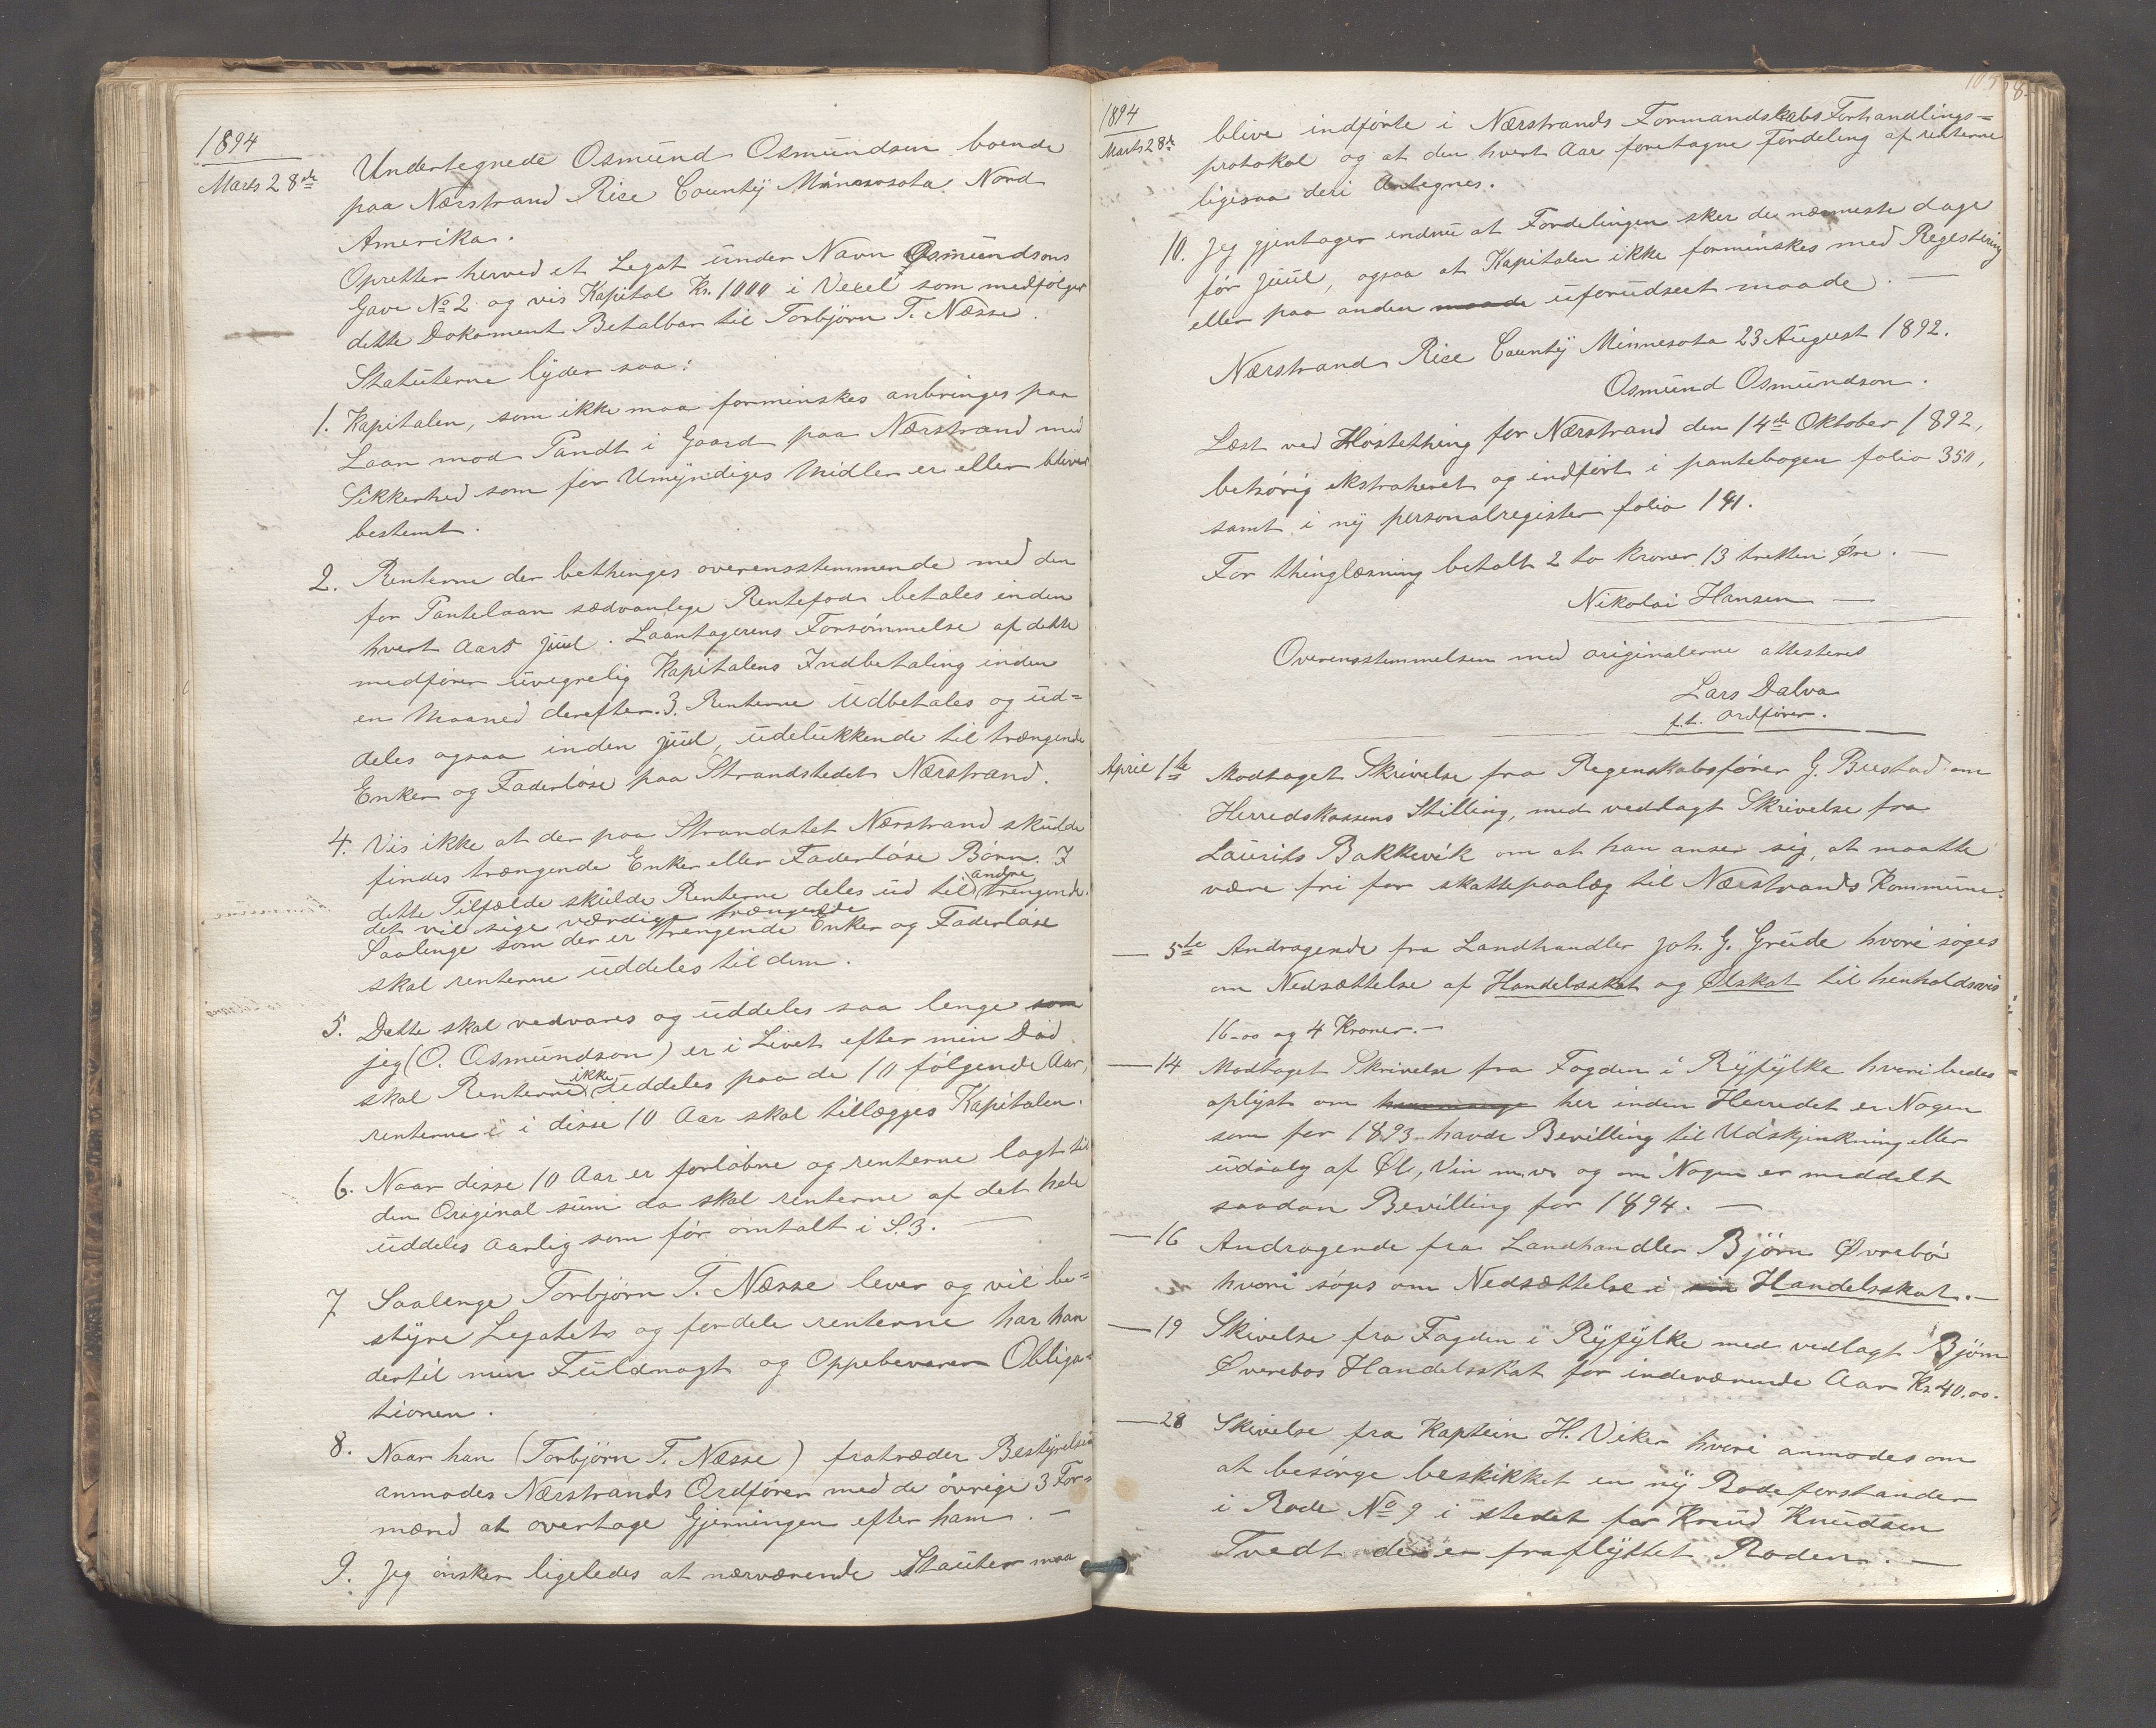 1894
Marts 28de
Undertegnede Osmund Osmundsen boende
paa Nærstrand Rice County Minesosota Nord
Amerika.
Opretter herved et Legat under Navn Osmundsons
Gave No 2 og vis Kapital Kr. 1000 i Vexel som medfølger
dette Dokament Betalbar til Torbjørn T. Næsse.
Statuterne lyder saa:
1. Kapitalen, som ikke maa forminskes anbringes paa
Laan mod Pandt i Gaard paa Nærstrand med
Sikkerhed som for Umyndiges Midler er eller bliver
bestemt.
2. Renterne der bethinges overensstemmende med den
for Pantelaan sædvanlege Rentefod betales inden
hvert Aars Juul. Laantagerens Forsømmelse af dette
medfører uvegrelig Kapitalens Indbetaling inden
en Maaned derefter. 3. Renterne Udbetales og ud=
deles ogsaa inden Juul, udelukkende til trængende
Enker og Faderløse paa Strandstedet Nærstrand.
4. Vis ikke at der paa Strandstet Nærstrand skulde
findes trængende Enker eller Faderløse Børn. I
dette Tilfælde skulde Renterne deles ud til andre trengende.
det vil sige værdige trængende
Saalenge som der er trengende Enker og Faderløse
skal renterne uddeles til dem.
5. Dette skal vedvares og uddeles saa lenge som
jeg (O. Osmundson) er i Livet efter min Død
skal Renterne ikke uddeles paa de 10 følgende Aar,
renterne i disse 10 Aar skal tillægges Kapitalen.
6. Naar disse 10 Aar er forløbne og renterne lagt til
den Original sum da skal renterne af det hele
uddeles Aarlig som før omtalt i S. 3. —
7 Saalenge Torbjørn T. Næsse lever og vil be=
styre Legatets og fordele renterne har han
dertil min Fuldmagt og Oppebevarer Obliga=
tionen.
8. Naar han (Torbjørn T. Næsse) fratræder Bestyrelsen
anmodes Nærstrands Ordfører med de øvrige 3 For=
mænd at overtage Gjerningen efter ham. —
9. Jeg ønsker ligeledes at nærværende Stauter maa
1894
Marts 28de
blive indførte i Nærstrands Formandskabs Forhandlings=
protokol og at den hvert Aar foretagne Fordeling af renterne
ligesaa deri Antegnes.
10. Jeg gjentager endnu at Fordelingen sker de nærmeste dage
før Juul, ogsaa at Kapitalen ikke forminskes med Regestering
eller paa anden maade uforudseet maade. —
Nærstrand Rice County Minnesota 23 August 1892.
Osmund Osmundson.
Læst ved Høstething for Nærstrand den 14de Oktober 1892,
behørig ekstraheret og indført i pantebogen folio 350,
samt i ny personalregister folio 141.
For thinglæsning betalt 2 to Kroner 13 tretten Øre. —
Nikolai Hansen —
Overensstemmelsen med originalerne attesteres
Lars Dalva
f.t. Ordfører.
April 1te Modtaget Skrivelse fra Regenskabsfører G. Bustad om
Herredskassens Stilling, med vedlagt Skrivelse fra
Laurits Bakkevik om at han anser sig, at maatte
være fri for skattepaalæg til Nærstrands Kommune.
— 5te Andragende fra Landhandler Joh. G. Grude hvori søges
om Nedsættelse af Handelsskat og Ølskat til henholdsvis
16.00 og 4 Kroner. —
— 14 Modtaget Skrivelse fra Fogden i Ryfylke hvori bedes
oplyst om her inden Herredet er Nogen
som for 1893 havde Bevilling til Udskjenkning eller
udsalg af Øl, Vin m.v. og om Nogen er meddelt
saadan Bevilling for 1894. —
— 16 Andragende fra Landhandler Bjørn Øvrebø
hvori søges om Nedsættelse i sin Handelsskat. —
— 19 Skivelse fra Fogden i Ryfylke med vedlagt Bjørn
Øverebøs Handelsskat for indeværende Aar Kr 40.00.
— 28 Skivelse fra Kaptein H. Viker hvori anmodes om
at besørge beskikket en ny Rodeforstander
i Rode No 9 i stedet for Knud Knudsen
Tvedt der er fraflyttet Roden. —